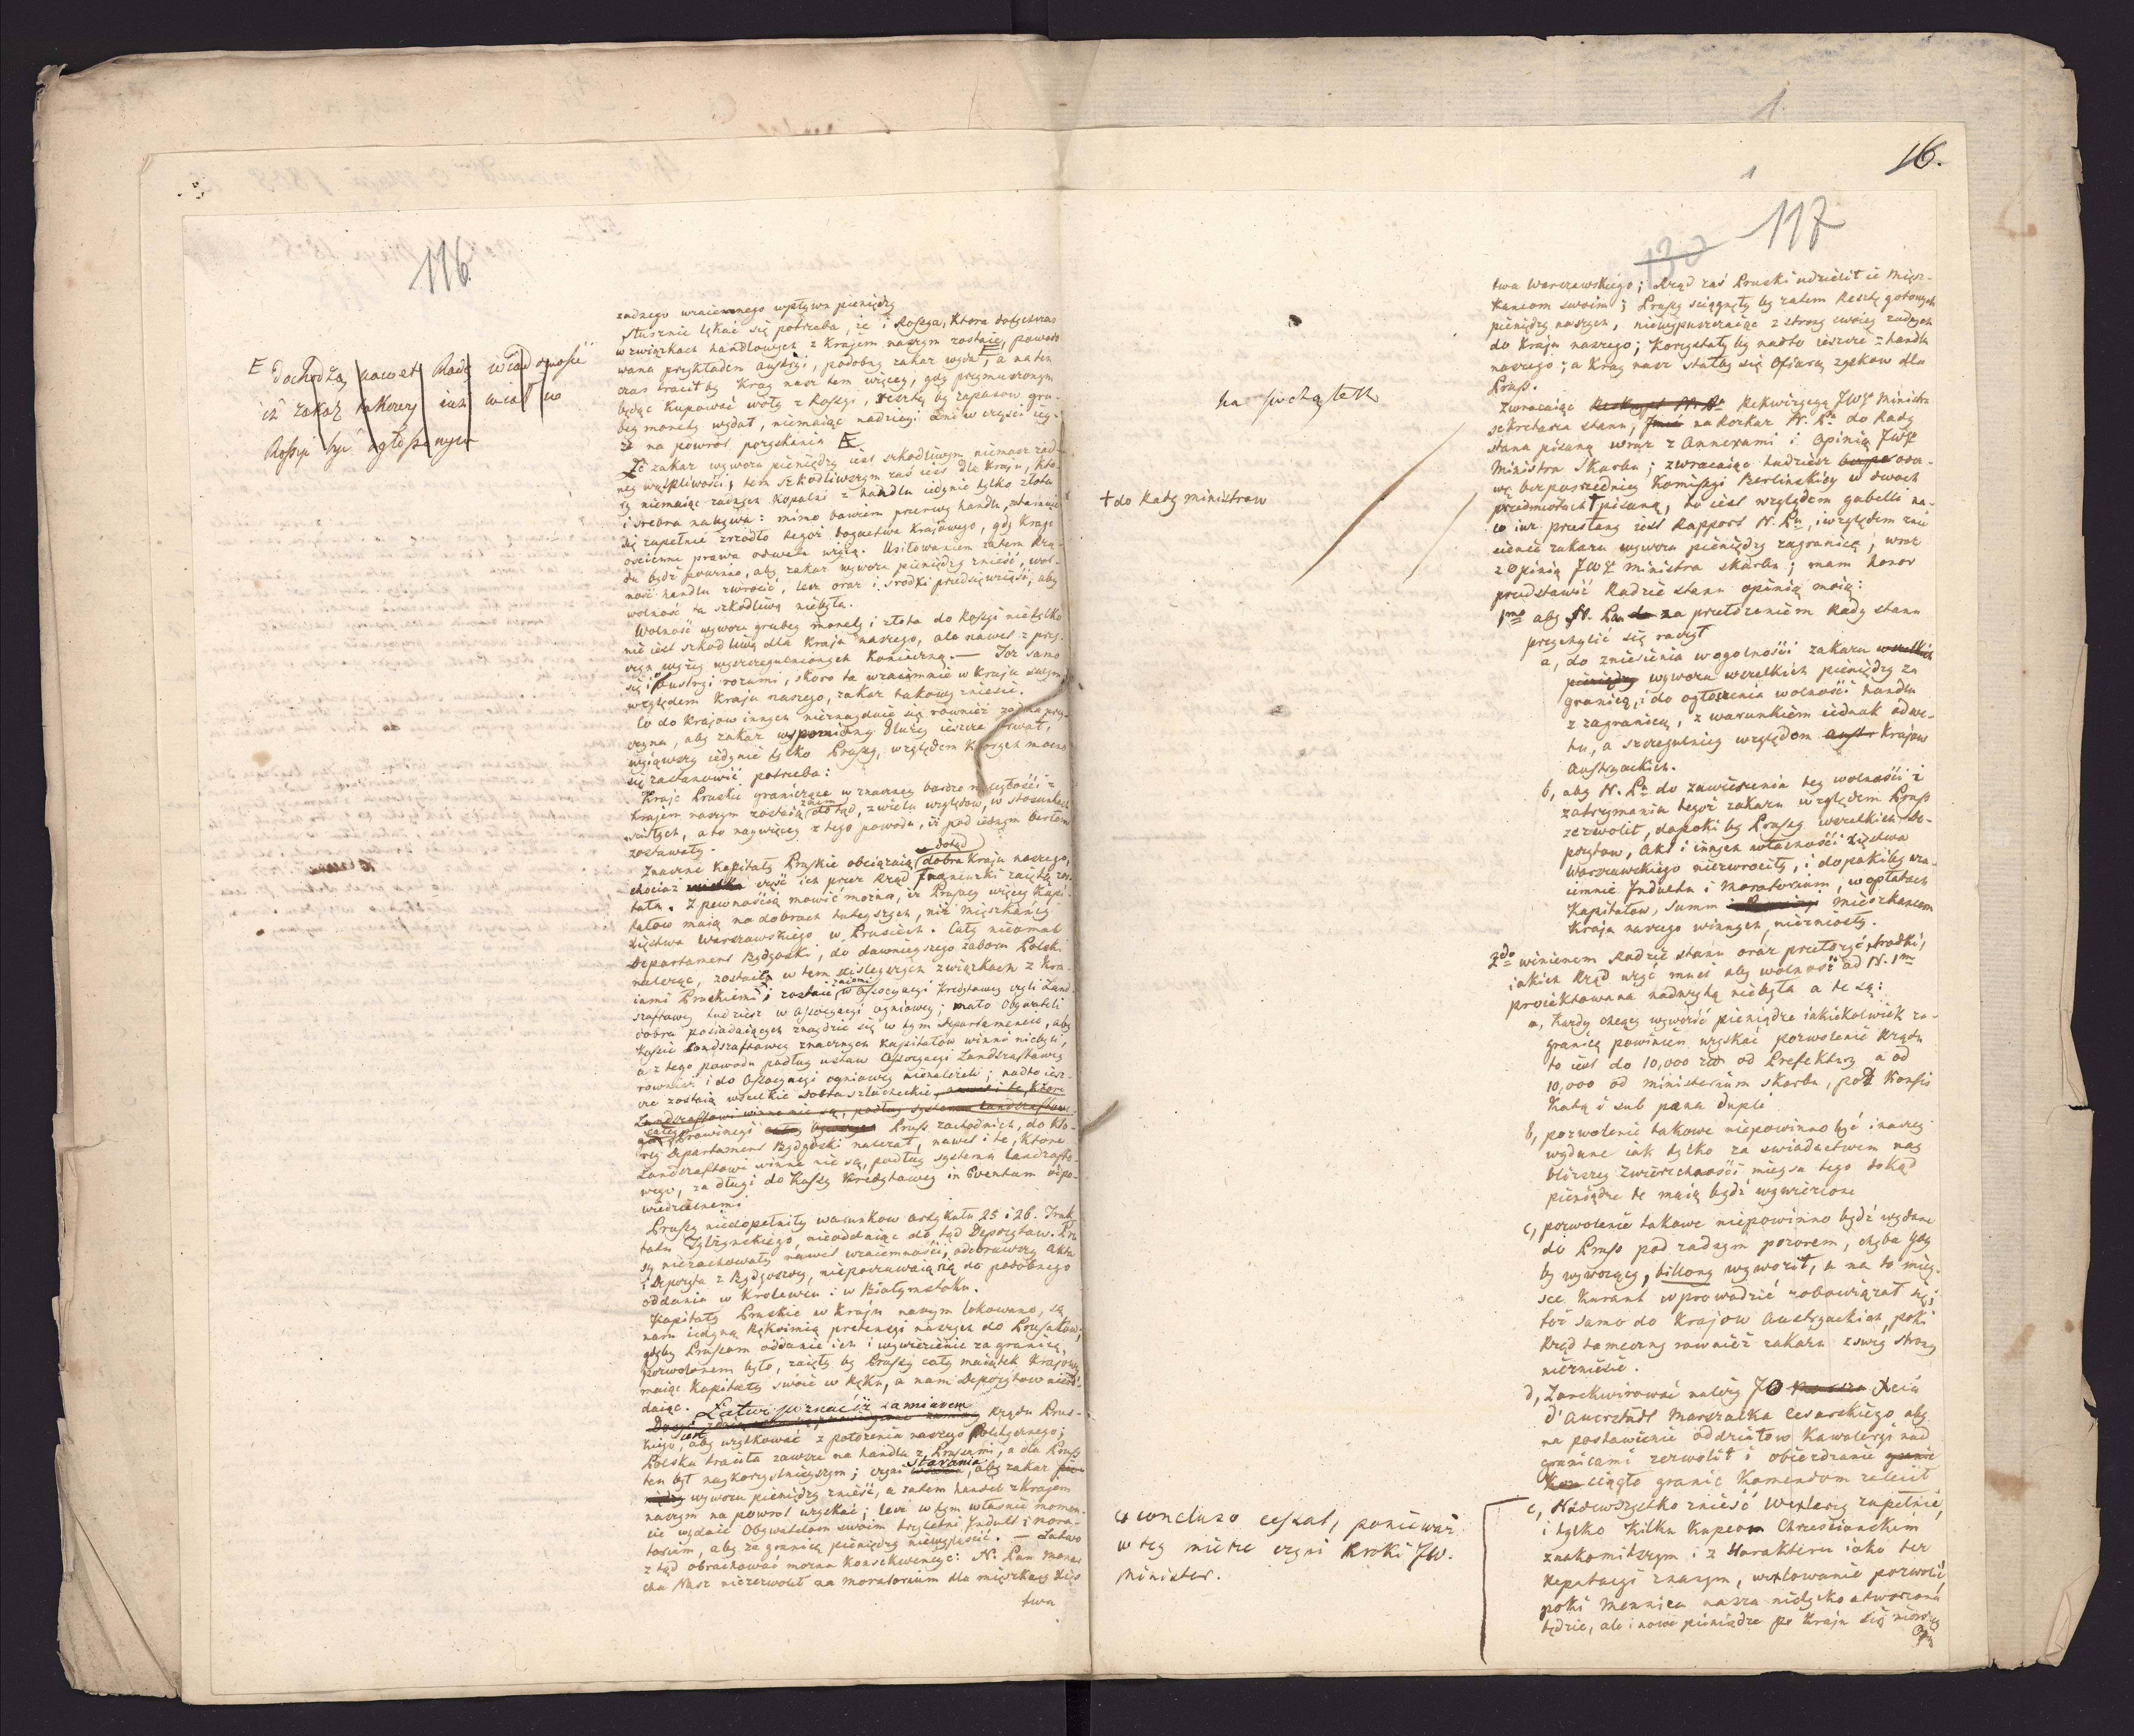 116.
E dochodzą nawet Radę wiadomości
iż zakaz takowy iuż miał w
Rossyi być ogłoszonym
żadnego wzaiemnego wpływu pieniędzy
Słusznie lękać się potrzeba, że i Rossya, która dotychczas
w związkach handlowych z krajem naszym zostaie, powodo
wana przykładem Austryi, podobny zakaz wyda E, a na ten
czas traciłby Kray nasz tem więcey, gdy przymuszonym
będąc kupować woły z Rossyi, resztę by zapasow gru-
bey monety wydał, niemaiąc nadziei ani w części iey
że na powrot pozyskania E
Że zakaz wywozu pieniędzy iest szkodliwym niemasz żad-
ney wątpliwości; tem szkodliwszym zaś iest dla Kraju, któ-
ry niemaiąc żadnych kopalni z handlu iedynie tylko złota
i srebra nabywa: mimo bowiem przerwy handlu, tamuie
się zupełnie zrzodło tegoż bogactwa Krajowego, gdy kraje
oscienne prawa odwetu użyią. Usiłowaniem zatem Rzą-
du bydź powinno, aby zakaz wywozu pieniędzy znieść, wol-
ność handlu zwrócić, lecz oraz i środki przedsięwziąść, aby
wolność ta szkodliwą niebyła.
Wolność wywozu grubey monety i złota do Rossyi nietylko
nie iest szkodliwą dla Kraju naszego, ale nawet z przy-
czyn wyżey wyszczegulnionych konieczną. — Toż samo
się i o Austryi rozumi, skoro ta wzaiemnie w Kraju swym
względem Kraju naszego, zakaz takowy zniesie.
Co do Krajow innych nieznayduie się również żadna przy-
czyna, aby zakaz wspomniony dłużey ieszcze trwał,
wyiąwszy iedynie tylko Prussy, względem ktorych mocno
się zastanowić potrzeba:
Kraje Pruskie graniczące w znaczney bardzo rozległości z
Krajem naszym zostaią z niem dotąd, z wielu względow, w stosunkach
scisłych, a to naywięcey z tego powodu, iż pod iednym berłem
zostawały.
Znaczne kapitały Pruskie obciążaią dotąd dobra Kraju naszego,
chociaż wielka część ich przez Rząd francuzki zaiętą zos-
tała. Z pewnością mowić można, iż Prusacy więcey Kapi-
tałow maią na dobrach tuteyszych, niż mięszkańcy
Xięstwa Warszawskiego w Prusiech. Cały nieomal
Departament Bydgoski, do dawnieyszego zaboru Polski
należąc, zostaie w tem ściśleyszych związkach z Kra-
iami Pruskiemi, i zostaie z niemi w Assocyacyi Kredytowey czyli Land-
szaftowey tudzież w Assocyacyi ogniowey; mało Obywateli
dobra posiadaiących znaydzie się w tym Departamencie, aby
Kassie Landszaftowey znacznych Kapitałów winni niebyli,
a z tego powodu podług ustaw Assocyacyi Landszaftowey
rownież i do Assocyacyi ogniowey nienależeli; nadto iesz-
cze zostaią wszelkie dobra szlacheckie nawet i te, które
Landszaftowi winne nie są, podług systema Landszaftow-
całey Prowincyi Pruss zachodnich, do kto-
rey Departament Bydgoski należał, nawet i te, które
Landszaftowi winne nie są, podług systema Landszafto-
wego, za długi do Kassy Kredytowey in Eventum odpo-
wiedzialnemi
Prussy niedopełniły warunkow artykułu 25 i 26. Trak
tatu Tylżyckiego, nieoddaiąc do tąd Depozytow. Prus
sy niezachowały nawet wzaiemności, odebrawszy Akta
i Depozyta z Bydgoszczy, niepoczuwaią się do podobnego
oddania w Krolewcu i w Białymstoku.
Kapitały Pruskie w Kraju naszym lokowane, są
nam iedyną rękoimią pretensyi naszych do Prusakow;
gdyby Prussom oddanie ich i wywiezienie za granicę,
pozwolonem było, zaięły by Prussy cały maiątek Krajowy
maiąc Kapitały swoie w ręku, a nam Depozytow nieod-
daiąc. Łatwo poznać iż zamiarem
Rządu Prus-
kiego iest, aby zyskować z położenia naszego Politycznego;
Polska traciła zawsze na handlu z Prusami, a dla Pruss
ten był naykorzystnieyszym; czyni starania, aby zakaz pie-
niędzy wywozu pieniędzy znieść, a zatem handel z Krajem
naszym na powrot uzyskać; lecz w tym właśnie momen-
cie wydaie Obywatelom swoim trzyletni Indult i mora-
torium, aby za granicę pieniędzy niewypłacić. — Łatwo
z tąd obrachować można konsekwencye: N. Pan Monar
cha Nasz niezezwolił na moratorium dla mięszkańcy Xięs
twa
16.
1
1
130 117
na początek
† do Rady ministrow
co concluso cessat, ponieważ
w tey mierze czyni kroki JW.
Minister.
twa Warszawskiego; Rząd zaś Pruski udzielił ie Mięsz-
kancom swoim; Prussy sciągnęły by zatem Resztę gotowych
pieniędzy naszych, niewypuszczaiąc z strony swoiey żadnych
do Kraju naszego; Korzystały by nadto ieszcze z handlu
naszego; a Kray nasz stałby się ofiarą zyskow dla
Pruss.
Zwracaiąc Reskrypt N. Pa Rekwizycyą JWgo Ministra
Sekretarza stanu, Jmć na Rozkaz N. Pa do Rady
stanu pisaną wraz z Annexami i Opinią JWgo
Ministra Skarbu; zwracaiąc tudzież bezpo odez-
wę bezpośredniey Komissyi Berlińskiey w dwoch
przedmiotach † pisaną, to iest względem gabelli na-
co iuż przesłany iest Rapport N. Pu, i względem znie
sienia zakazu wywozu pieniędzy zagranicę, wraz
z Opinią JWgo Ministra Skarbu; mam honor
przedstawić Radzie stanu opinią moią:
1mo aby N. Pan do za przełożeniem Rady stanu
przychylić się raczył
a, do zniesienia w ogolności zakazu wszelkich
pieniędzy wywozu wszelkich pieniędzy za
granicę, i do ogłoszenia wolności handlu
z zagranicą, z warunkiem iednak odwe-
tu, a szczegulniey względem austr Krajow
Austryackich.
b, aby N. Pn do zawieszenia tey wolności i
zatrzymania tegoż zakazu względem Pruss
zezwolił, dopoki by Prussy wszelkich De-
pozytow, Akt i innych własności Xięstwa
Warszawskiego niezwrociły, i dopokiby wza-
iemnie Indultu i Moratorium, w opłatach
Kapitałow, summ mieszkańcom
Kraju naszego winnych, niezniosły.
2do winienem Radzie stanu oraz przełożyć środki,
iakich Rząd użyć musi aby wolność ad N. 1mo
proiektowana nadużytą niebyła a te są:
a, Każdy chcący wywieść pieniądze iakiekolwiek za-
granicę powinien uzyskać pozwolenie Rządu
to iest do 10,000 złł od Prefektury a od
10,000 od ministerium skarbu, pod Konfis
katą i sub pœna dupli
b, pozwolenie takowe niepowinno być inaczey
wydane iak tylko za swiadectwem nay
bliższey Zwierzchności mieysca tego dokąd
pieniądze te maią bydź wywiezione
c, pozwolenie takowe niepowinno bydź wydane
do Pruss pod żadnym pozorem, chyba gdy
by wywożący, billony wywoził, a na to miey-
sce Kurant wprowadzić zobowiązał się;
toż samo do Krajow Austryackich, poki
Rząd tameczny rownież zakazu z swey strony
niezniesie.
d, Zarekwirować należy JO Xcia
d'Auerstädt Marszałka Cesarskiego aby
na postawienie oddziałow Kawaleryi nad
granicami zezwolił i obieżdżanie
ciągło granic Komendom zalecił
e, Nadewszystko znieść Wexlerzy zupełnie,
i tylko kilku Kupcom Chrześcianskim
znakomitszym i z Harakteru iako też
Reputacyi znanym, wexlowanie pozwolić
poki Mennica nasza nietylko otworzona
będzie, ale i nowe pieniądze po Kraju się